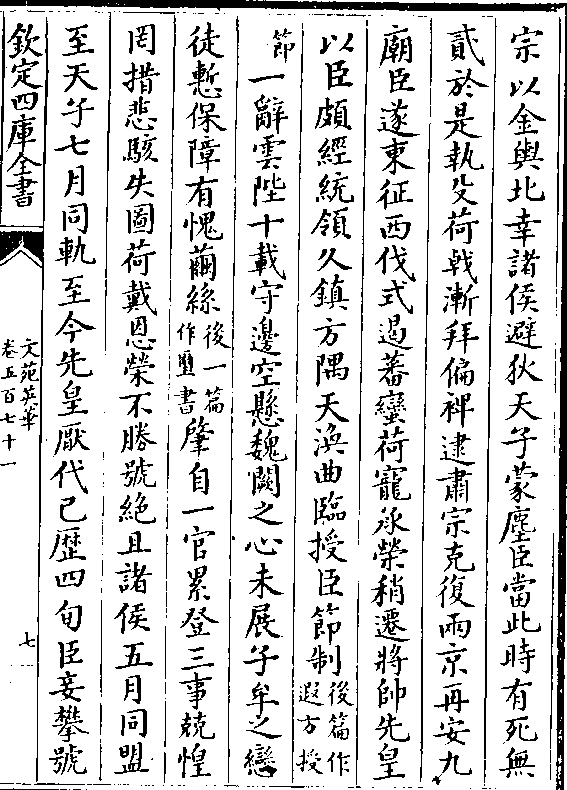 宗以金輿北幸諸侯避狄天子蒙塵臣當此時有死無
貳於是執殳荷戟漸拜偏裨逮肅宗克復兩京再安九
廟臣遂東征西伐式遏蕃蠻荷寵承榮稍遷將帥先皇
以臣頗經統領久鎮方隅天渙曲臨授臣節制後篇作遐方授
節一辭雲陛十載守邊空懸魏闕之心未展子牟之戀
徒慙保障有愧繭絲後一篇作璽書肇自一官累登三事兢惶
罔措悲駭失圖荷戴恩榮不勝號絶且諸侯五月同盟
至天子七月同軌至今先皇厭代已歷四旬臣妾攀號
欽定四庫全書
文苑英華
卷五百七十一
七